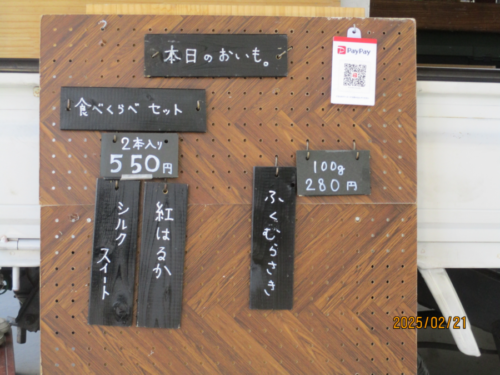 本日のおいも。
PayPay
食べくらべ セット
2本入り
550円
紅はるか
シルク
スイート
100g
280円
ふくむらさき
2025/02/21